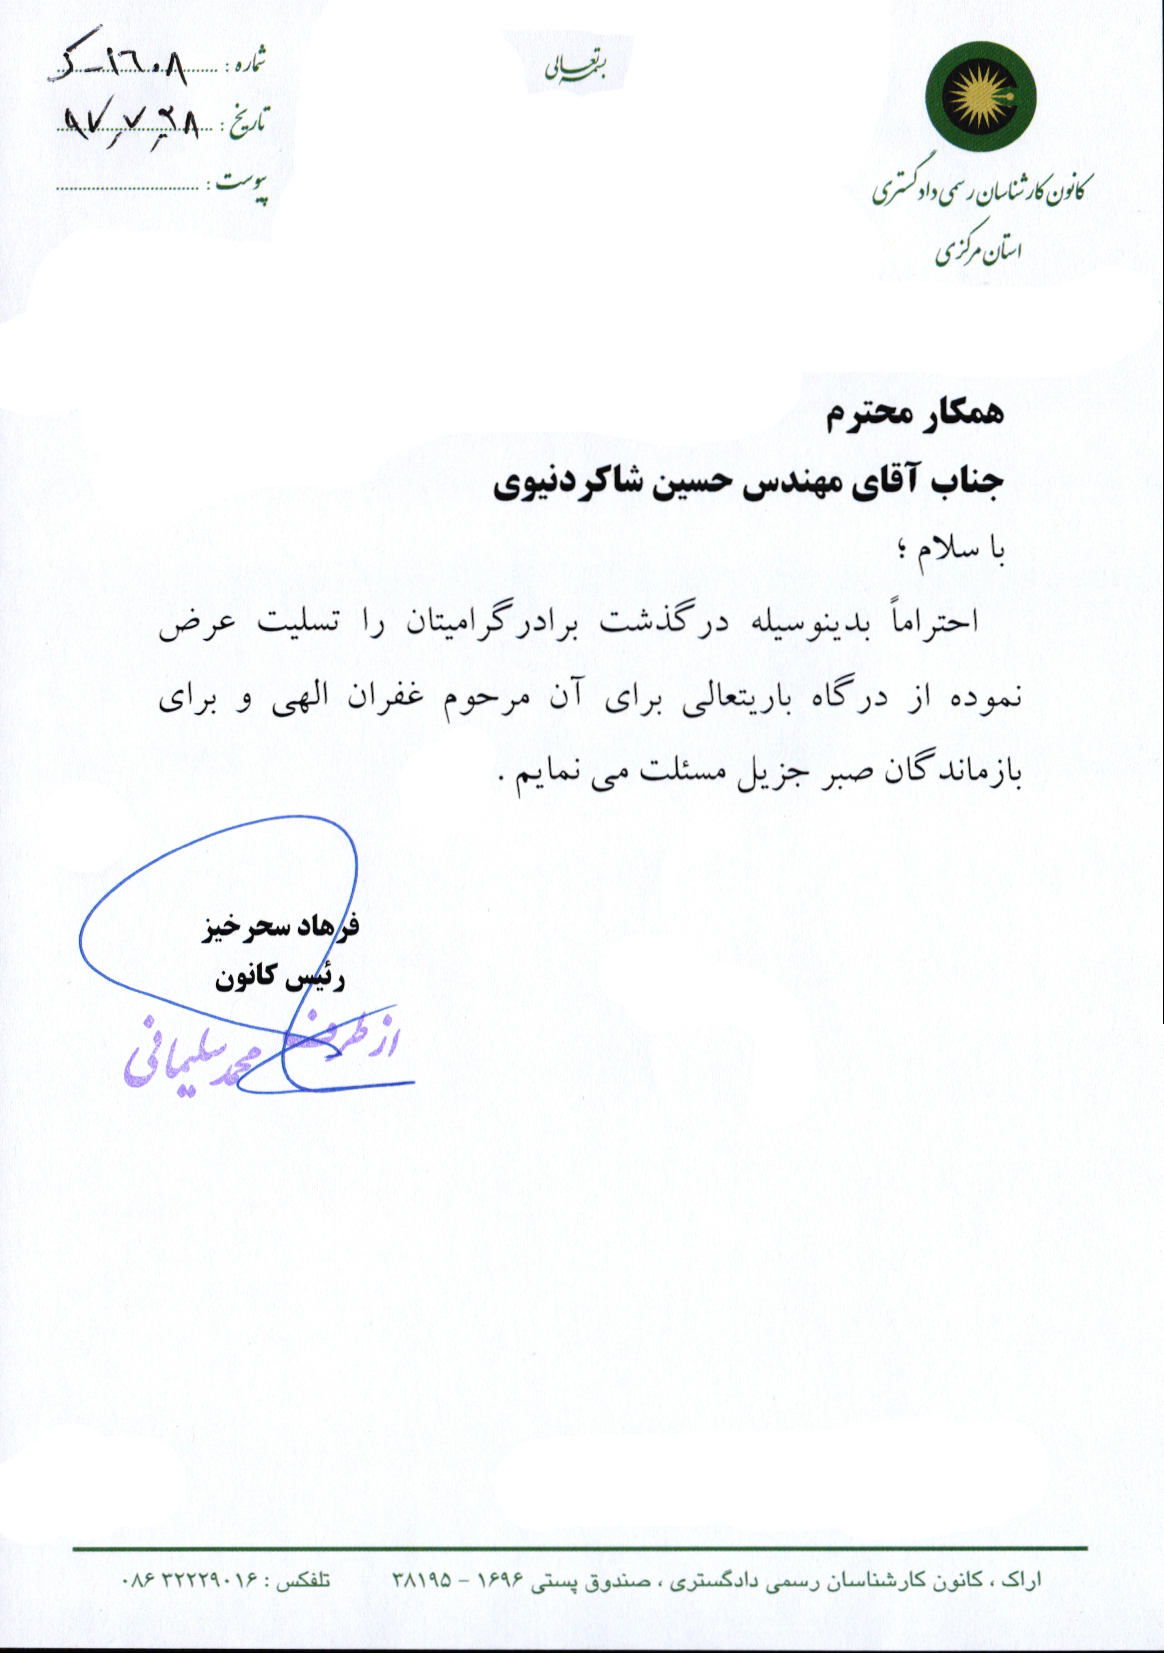 بسمه تعالی
کانون کارشناسان رسمی دادگستری
استان مرکزی
شماره : ۱۶۰۸-ک
تاریخ : ۹۷٫۷٫۲۸
پیوست :
همکار محترم
جناب آقای مهندس حسین شاکر دنیوی
با سلام ؛
احتراماً بدینوسیله درگذشت برادر گرامیتان را تسلیت عرض
نموده از درگاه باریتعالی برای آن مرحوم غفران الهی و برای
بازماندگان صبر جزیل مسئلت می نمایم .
فرهاد سحرخیز
رئیس کانون
از طرف محمد سلیمانی
اراک ، کانون کارشناسان رسمی دادگستری ، صندوق پستی ۱۶۹۶ – ۳۸۱۹۵ تلفکس : ۳۲۲۲۹۰۱۶ ۰۸۶